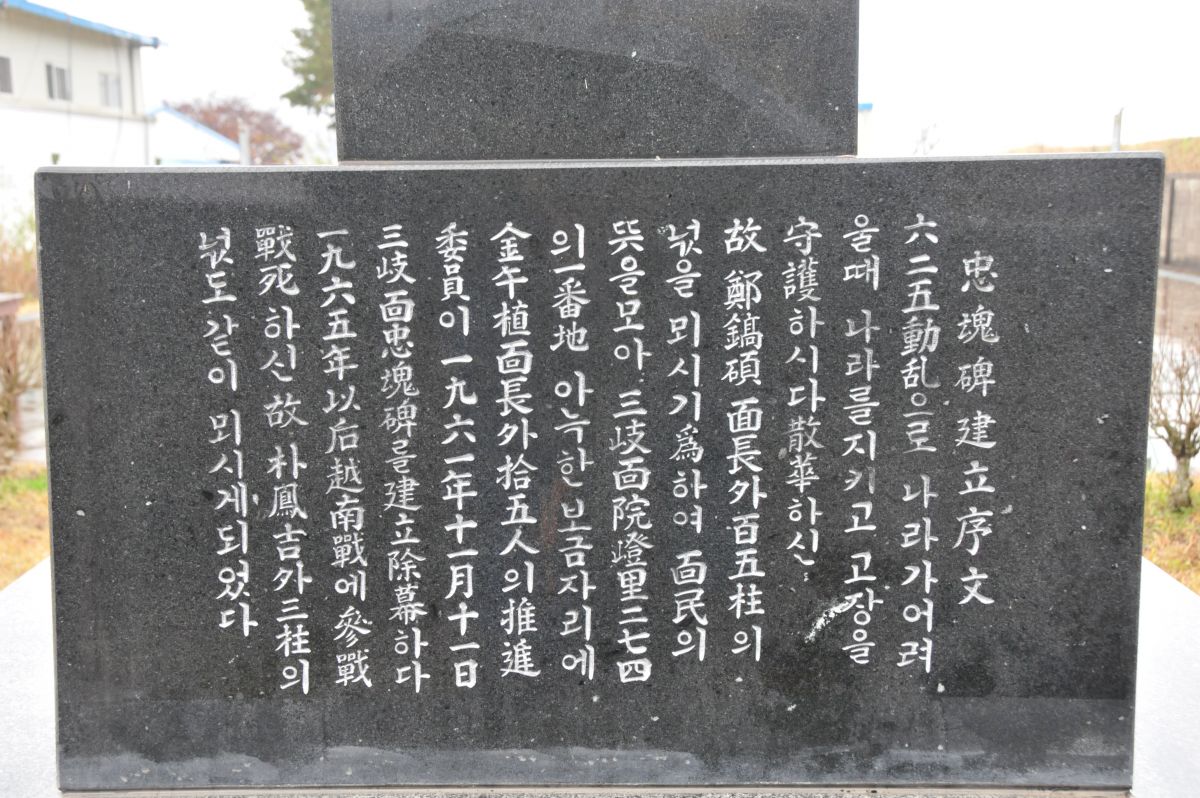 忠魂碑建立序文
六二五動乱으로 나라가어려
울때 나라를지키고 고장을
守護하시다散華하신
故 鄭鎬碩 面長外百五柱의
넋을 뫼시기爲하여 面民의
뜻을모아 三岐面院嶝里二七四
의一番地 아늑한보금자리에
金午植面長外拾五人의推進
委員이 一九六一年十一月十一日
三岐面忠塊碑를建立除幕하다
一九六五年以后越南戰에參戰
戰死하신故 朴鳳吉外三柱의
넋도같이 뫼시게되었다